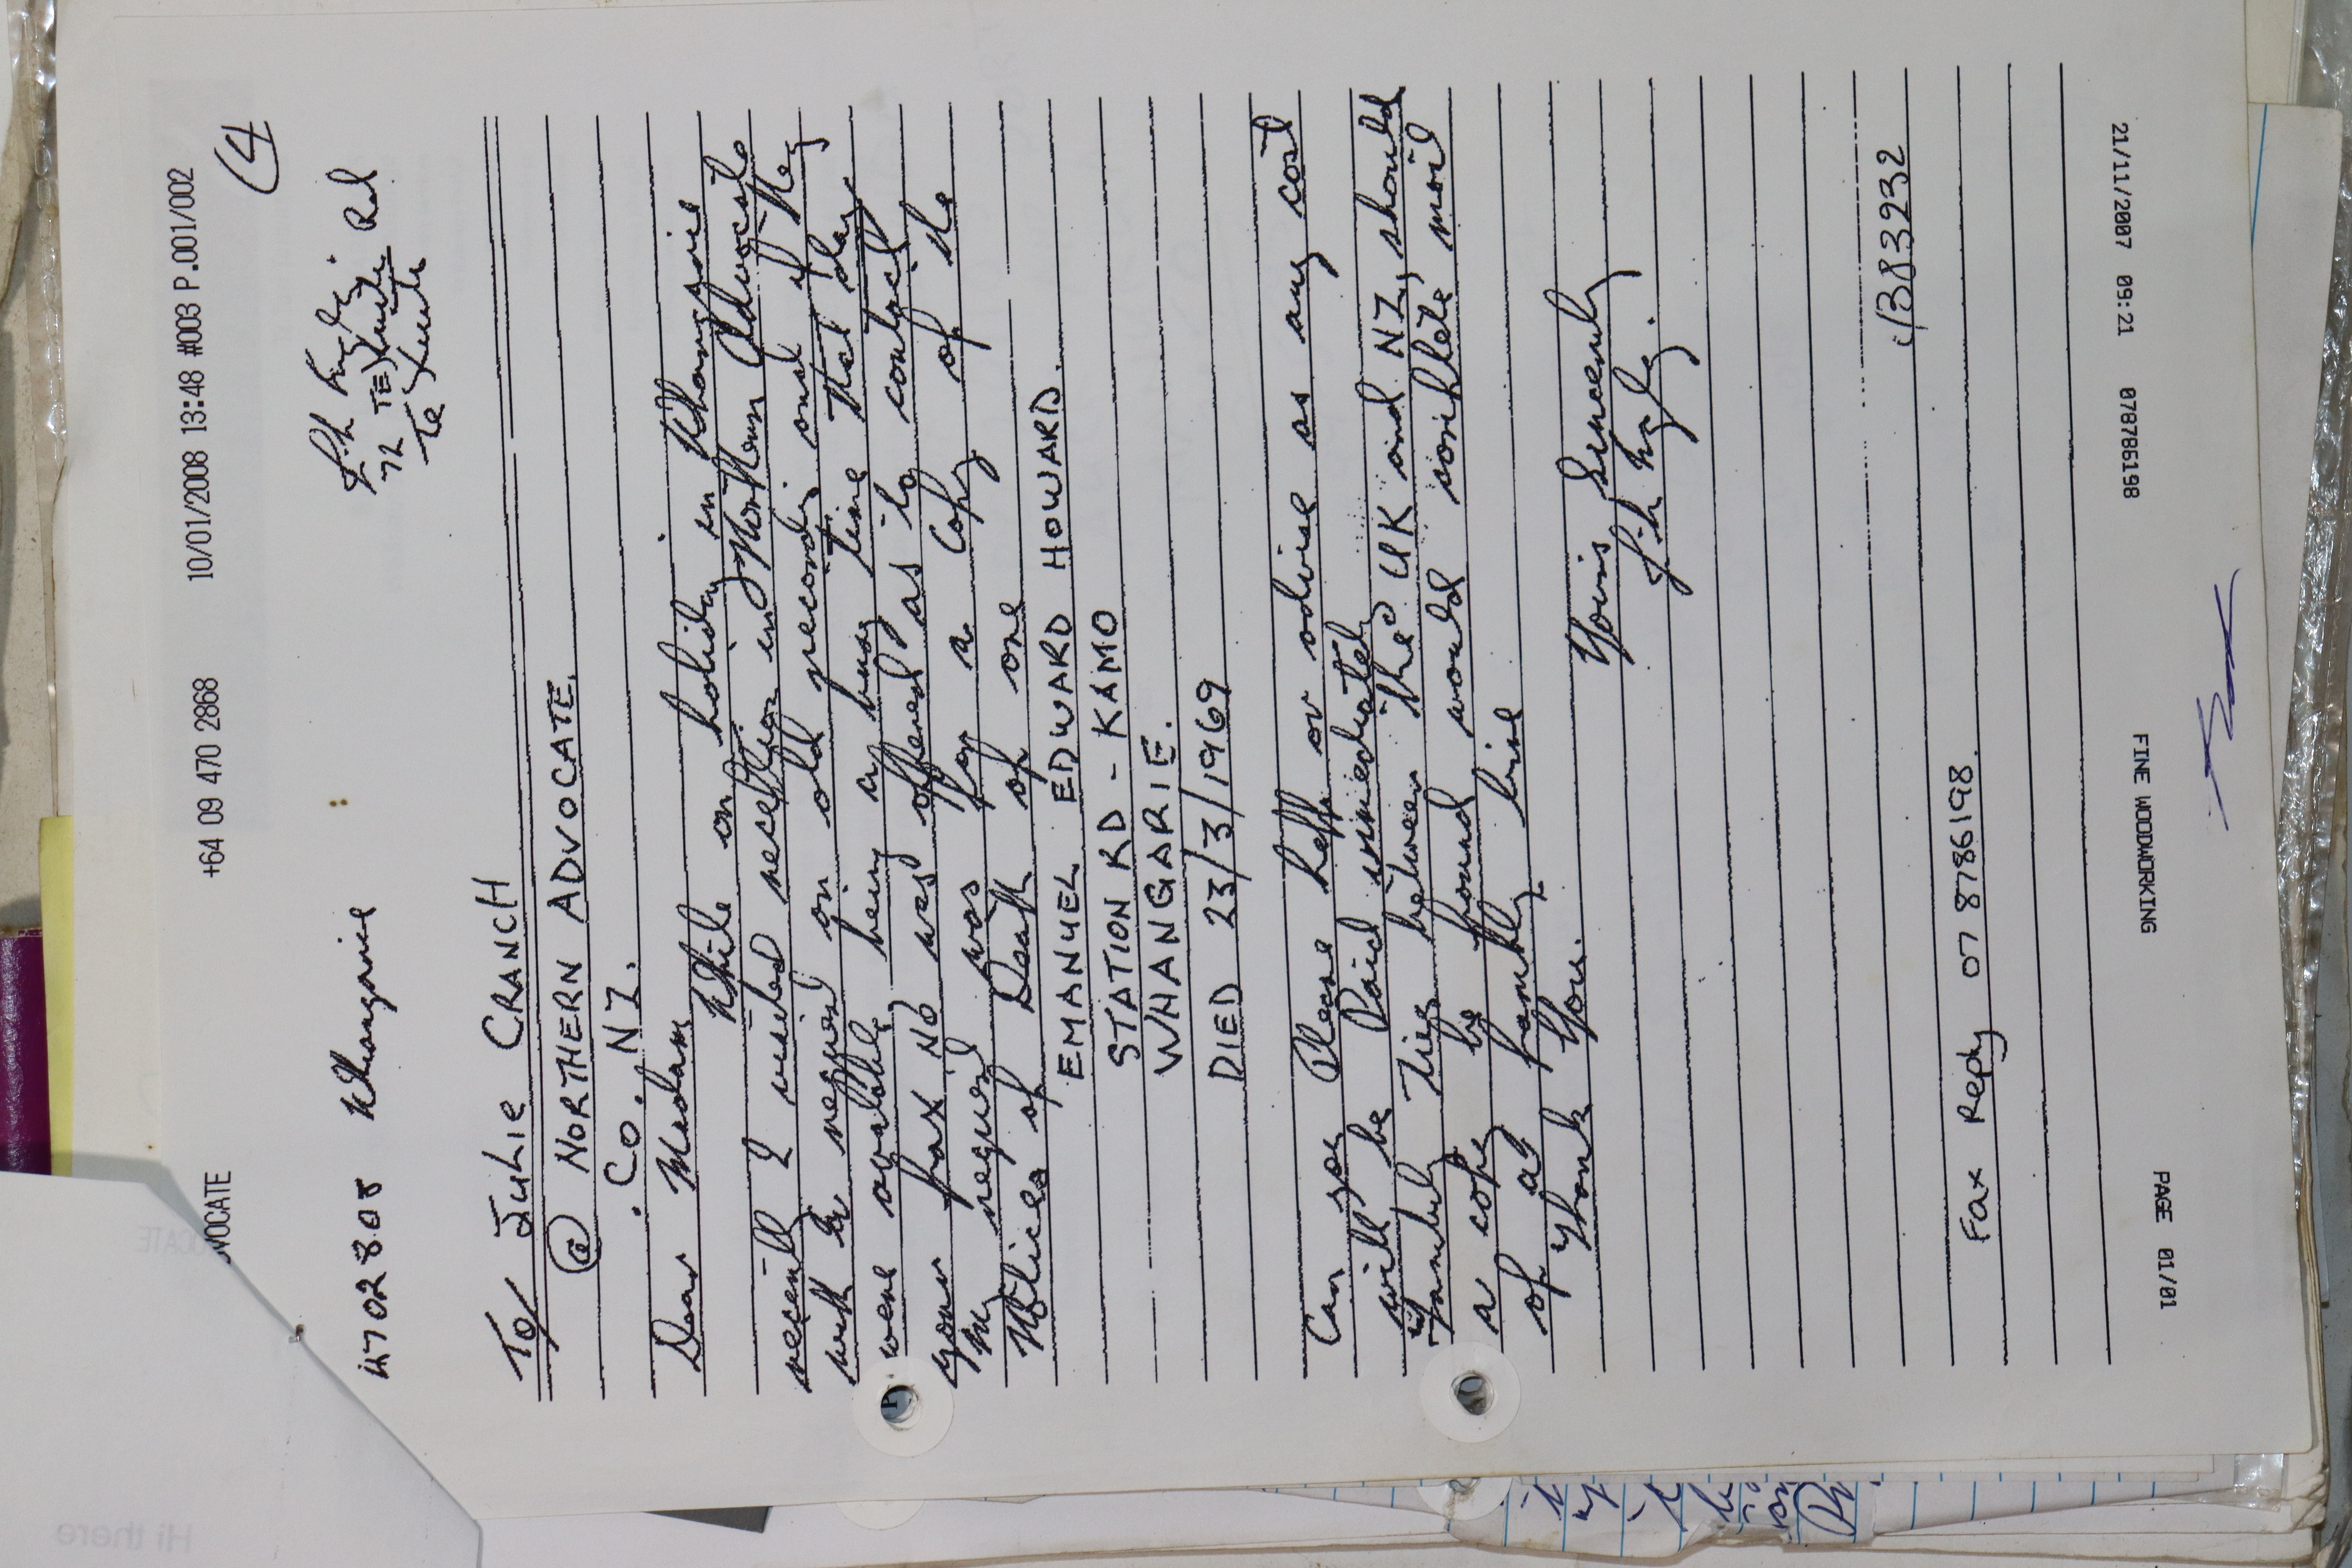 VOCATE +64 09 470 2868 10/01/2008 13:48 #003 P.001/002
(4
4702808 Whangarie
72 Rd
Te
To/ JULIE CRANCH
@ NORTHERN ADVOCATE.
. CO. NZ.
Dear Madam
While on holiday in Whangarie
recently I visited reception in Northern Advocate
with to regard on old records and if they
were available being a busy time that day
your fax No was offered as to contact
My request was for a copy of the
Notices of Death of one
EMANUEL EDWARD HOWARD.
STATION RD - KAMO
WHANGARIE.
DIED 23/3/1969
Can you Please help or advise as any cost
will be Paid immediately
Family Ties between "the" UK and NZ, should
a copy be found would would
of a family line
Thank You.
Yours Sincerely
4383232
Fax Reply 07 8786198.
PAGE 01/01 FINE WOODWORKING 078786198 21/11/2007 09:21
Hi there